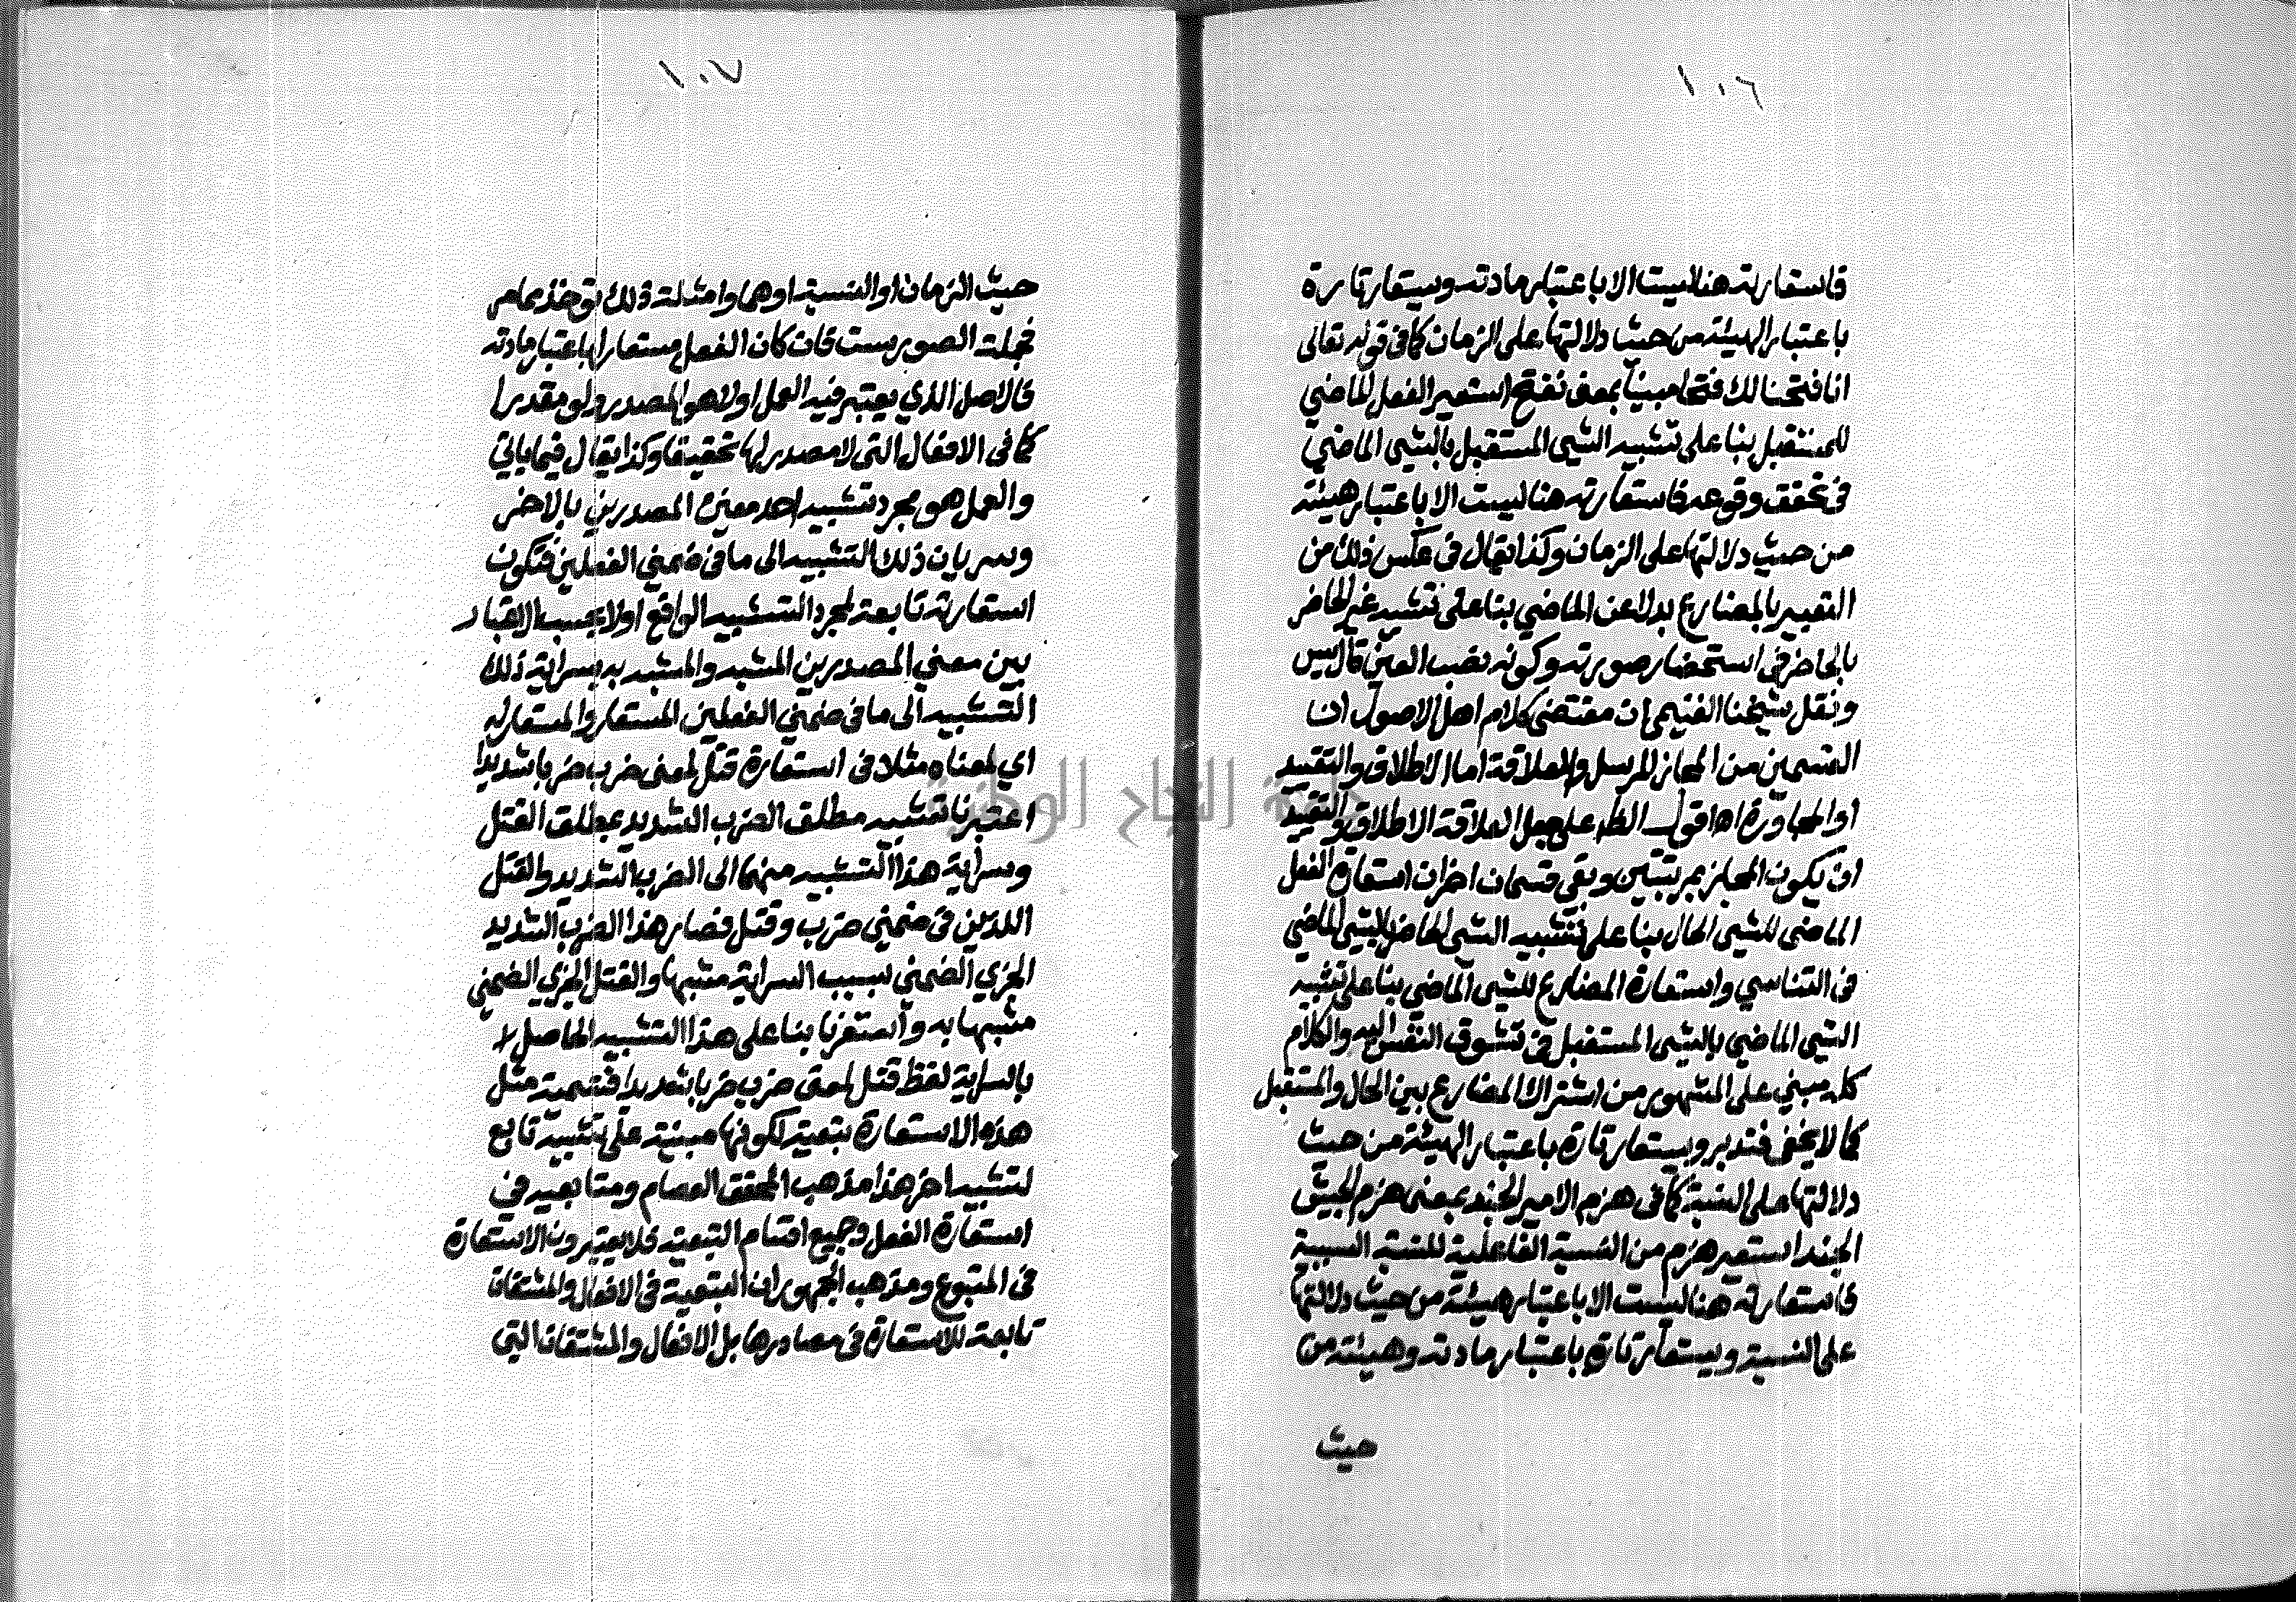 ١٠٦
فاستعارته هنا ليست الا باعتبار مادته ويستعار تارة
باعتبار الهيئة من حيث دلالتها على الزمان كما فى قوله تعالى
انا فتحنا لك فتحا مبينا بمعنى نفتح استعير الفعل الماضي
للمستقبل بنا على تشبيه الشيى المستقبل بالشيى الماضي
فى تحقق وقوعه فاستعارته هنا ليست الا باعتبار هيئته
من حيث دلالتها على الزمان وكذا يقال فى عكس ذلك من
التعبير بالمضارع بدلا عن الماضي بنا على تشبيه غير الحاضر
بالحاضر فى استحضار صورته وكونه نصب العين قال يس
ونقل شيخنا الغنيمى ان مقتضى كلام اهل الاصول ان
القسمين من المجاز المرسل والعلاقة اما الاطلاق والتقييد
او المجاورة اه اقول الظ على جعل العلاقة الاطلاق والتقييد
ان يكون المجاز بمرتبتين وبقى قسمان اخران استعارة الفعل
الماضى للشيى الحال بنا على تشبيه الشيى الحاضر بالشيى الماضي
فى التناسي واستعارة المضارع للشيى الماضي بنا على تشبيه
الشيى الماضي بالشيى المستقبل فى تشوق النفس اليه والكلام
كله مبني على المشهور من اشتراك المضارع بين الحال والمستقبل
كما لا يخفى فتدبر ويستعار تارة باعتبار الهيئة من حيث
دلالتها على النسبة كما فى هزم الامير الجند بمعنى هزم الجيش
الجند استعير هزم من النسبة الفاعلية للنسبة السببية
فاستعارته هنا ليست الا باعتبار هيئته من حيث دلالتها
على النسبة ويستعار تارة باعتبار مادته وهيئته من
حيث
١٠٧
حيث الزمان او النسبة او هما وامثلة ذلك توخذ مما مر
فجملة الصور ست فان كان الفعل مستعارا باعتبار مادته
فالاصل الذي يعتبر فيه العمل اولا هو المصدر ولو مقدرا
كما فى الافعال التى لا مصدر لها تحقيقا وكذا يقال فيما ياتي
والعمل هو مجرد تشبيه احد معنى المصدرين بالاخر
وسريان ذلك التشبيه الى ما فى ضمني الفعلين فتكون
استعارته تابعة لمجرد التشبيه الواقع اولا بحسب الاعتبار
بين معني المصدرين المشبه والمشبه به بسراية ذلك
التشبيه الى ما فى ضمني الفعلين المستعار والمستعار له
اي لمعناه مثلا فى استعارة قتل لمعنى ضرب ضربا شديدا
اعتبرنا تشبيه مطلق الضرب الشديد بمطلق القتل
وسراية هذا التشبيه منهما الى الضرب الشديد والقتل
اللذين فى ضمني ضرب وقتل فصار هذا الضرب الشديد
الجزي الضمني بسبب السراية مشبها والقتل الجزي الضمني
مشبها به واستعرنا بنا على هذا التشبيه الحاصل
بالسراية لفظ قتل لمعنى ضرب ضربا شديدا فتسمية مثل
هذه الاستعارة بتبعية لكونها مبنية على تشبيه تابع
لتشبيه اخر هذا مذهب المحقق العصام ومتابعيه فى
استعارة الفعل وجميع اقسام التبعية فلا يعتبرون الاستعارة
فى المتبوع ومذهب الجمهور ان التبعية فى الافعال والمشتقات
تابعة للاستعارة فى مصادرها بل الافعال والمشتقات التى
جامعة النجاح الوطنية